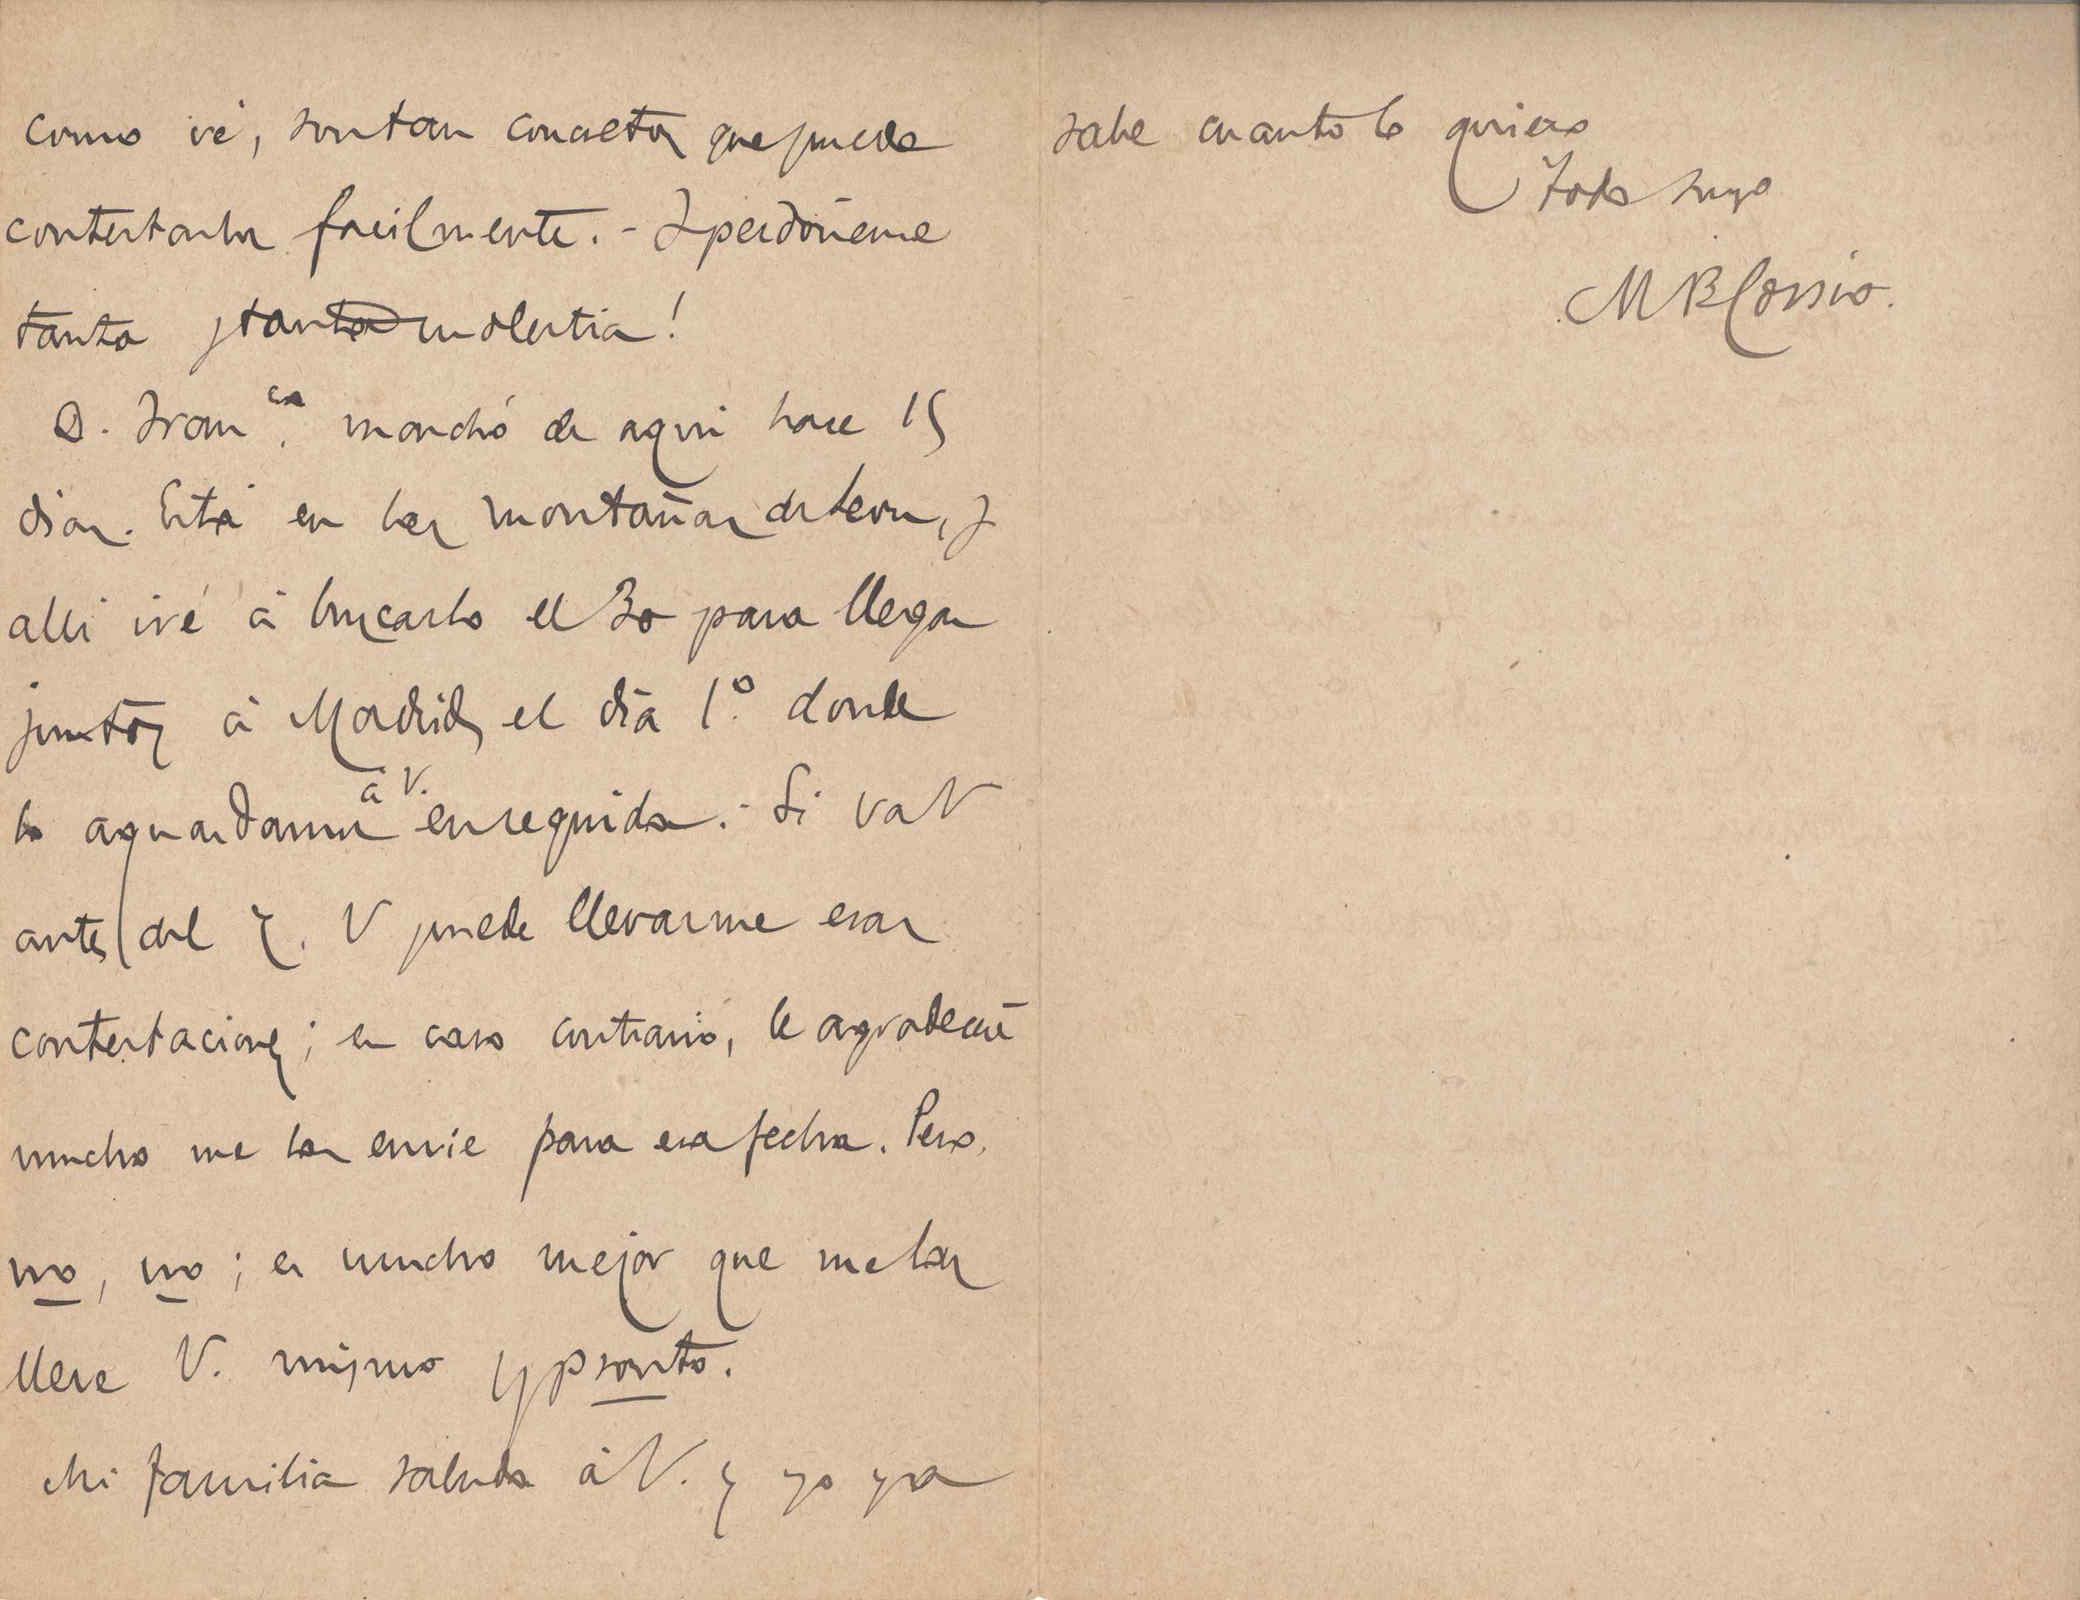 como vé, son tan concretos que puede
contestarlos facilmente. - Y perdóneme
tanta y tanta molestia!
D. Fran.co marchó de aqui hace 15
dias. Está en las montañas de Leon, y
alli iré á buscarlo el 30 para llegar
juntos á Madrid el dia 1.º donde
lo aguardamos á V. enseguida. - Si va V
antes del 7, V puede llevarme esas
contestaciones; en caso contrario, le agradeceré
mucho me las envie para esa fecha. Pero,
no, no; es mucho mejor que me las
lleve V. mismo y pronto.
Mi familia saluda á V. y yo ya
sabe cuanto lo quiero
Todo suyo
M B Cossio.